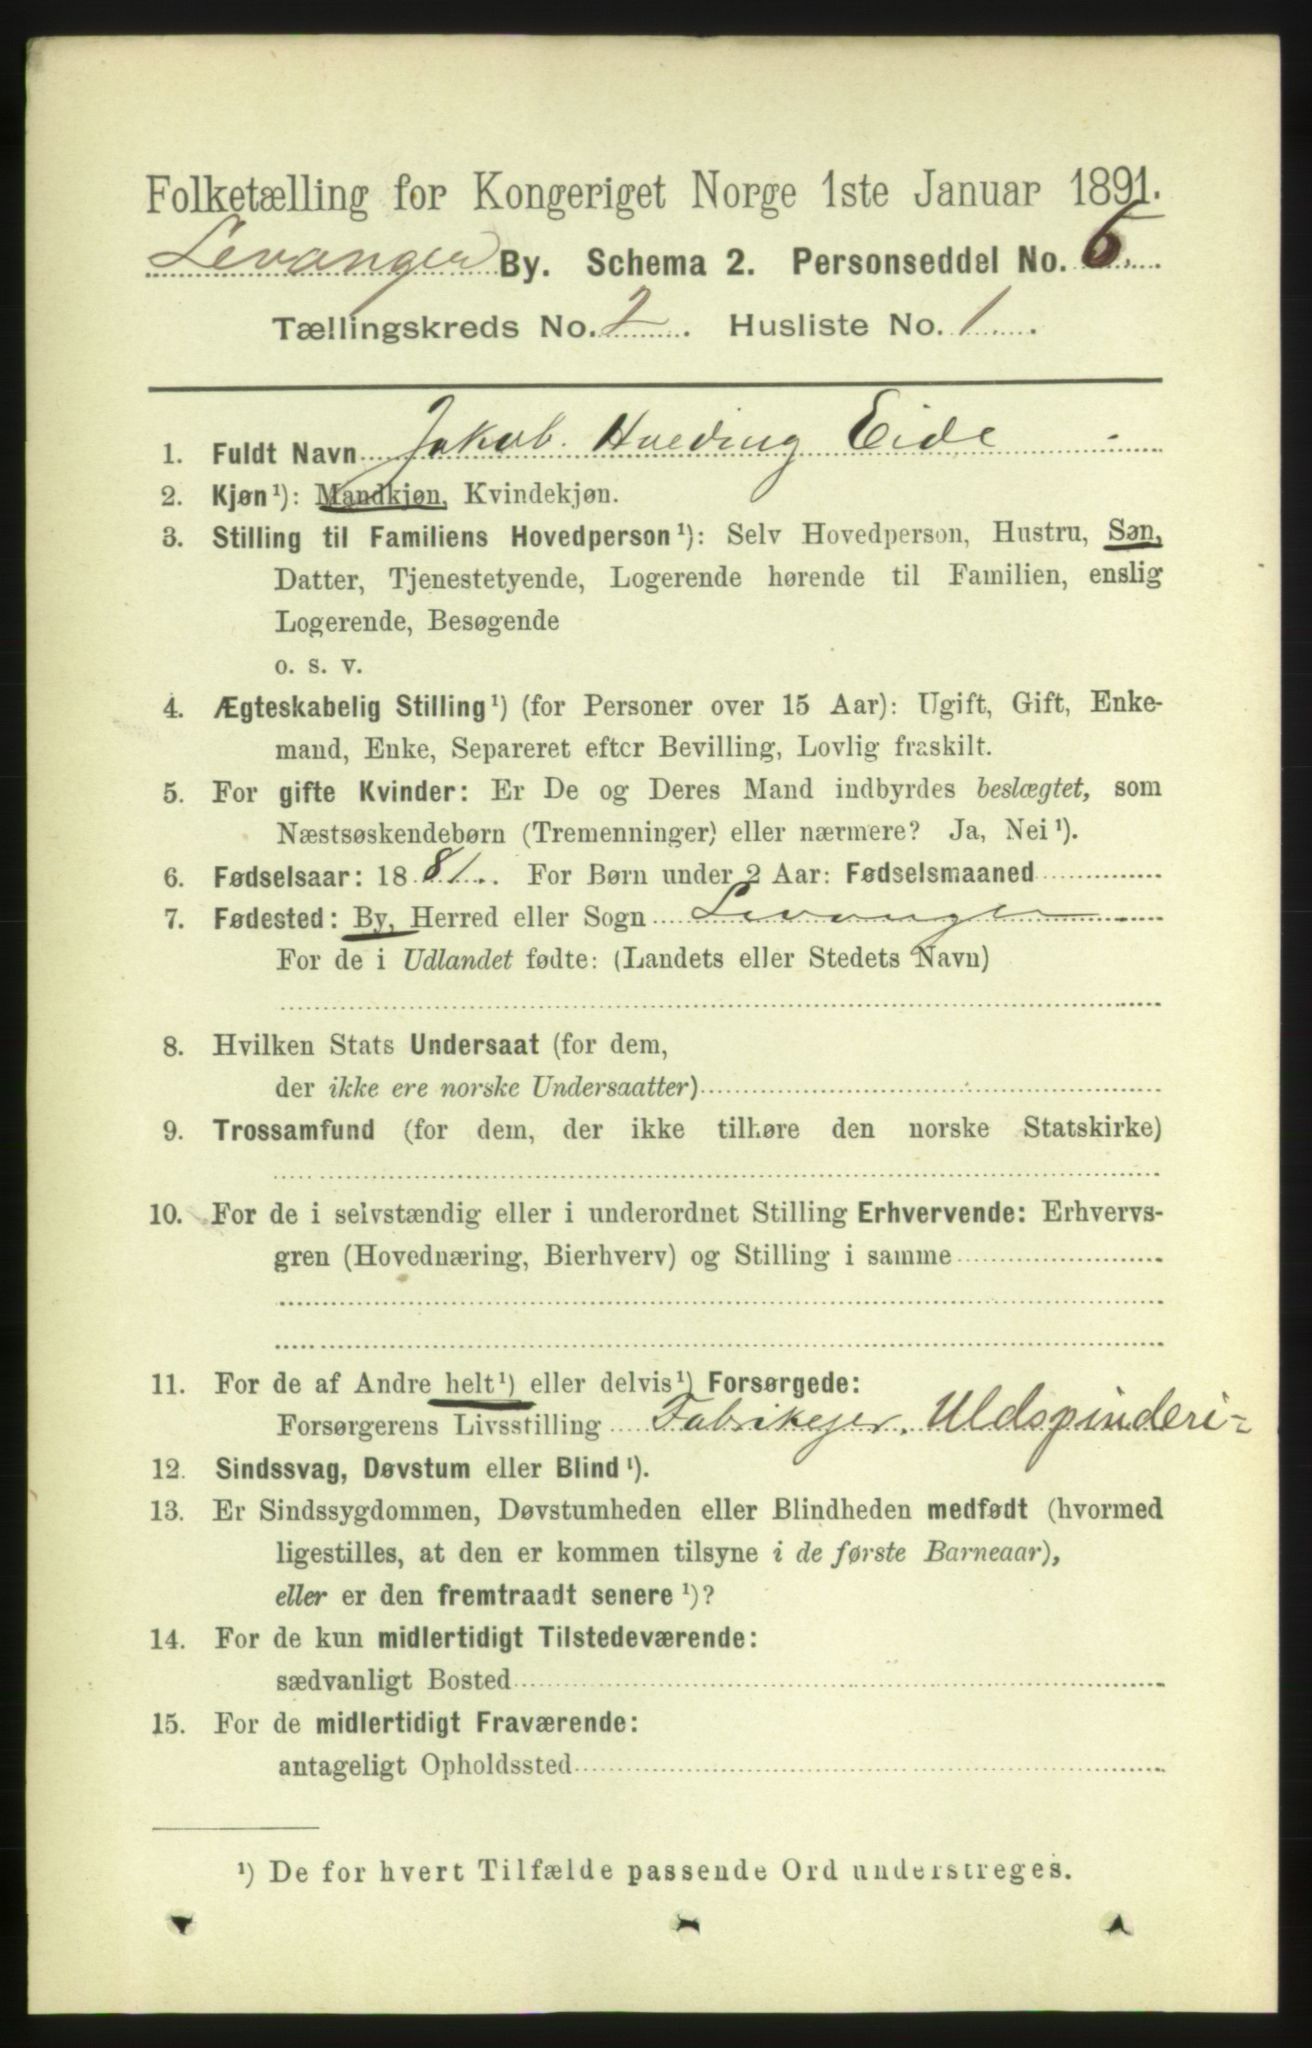 Folketælling for Kongeriget Norge 1ste Januar 1891.
Levanger By. Schema 2. Personseddel No. 6.
Tællingskreds No. 2. Husliste No. 1
1. Fuldt Navn Jakob Hveding Eide
2. Kjøn¹): Mandkjøn, Kvindekjøn.
3. Stilling til Familiens Hovedperson¹): Selv Hovedperson, Hustru, Søn,
Datter, Tjenestetyende, Logerende hørende til Familien, enslig
Logerende, Besøgende
o. s. v.
4. Ægteskabelig Stilling¹) (for Personer over 15 Aar): Ugift, Gift, Enke-
mand, Enke, Separeret efter Bevilling, Lovlig fraskilt.
5. For gifte Kvinder: Er De og Deres Mand indbyrdes beslægtet, som
Næstsøskendebørn (Tremenninger) eller nærmere? Ja, Nei¹).
6. Fødselsaar: 1881. For Børn under 2 Aar: Fødselsmaaned
7. Fødested: By, Herred eller Sogn Levanger
For de i Udlandet fødte: (Landets eller Stedets Navn)
8. Hvilken Stats Undersaat (for dem,
der ikke ere norske Undersaatter)
9. Trossamfund (for dem, der ikke tilhøre den norske Statskirke)
10. For de i selvstændig eller i underordnet Stilling Erhvervende: Erhvervs-
gren (Hovednæring, Bierhverv) og Stilling i samme
11. For de af Andre helt¹) eller delvis¹) Forsørgede:
Forsørgerens Livsstilling Fabrikejer. Uldspinderi-
12. Sindssvag, Døvstum eller Blind¹).
13. Er Sindssygdommen, Døvstumheden eller Blindheden medfødt (hvormed
ligestilles, at den er kommen tilsyne i de første Barneaar),
eller er den fremtraadt senere¹)?
14. For de kun midlertidigt Tilstedeværende:
sædvanligt Bosted
15. For de midlertidigt Fraværende:
antageligt Opholdssted
¹) De for hvert Tilfælde passende Ord understreges.